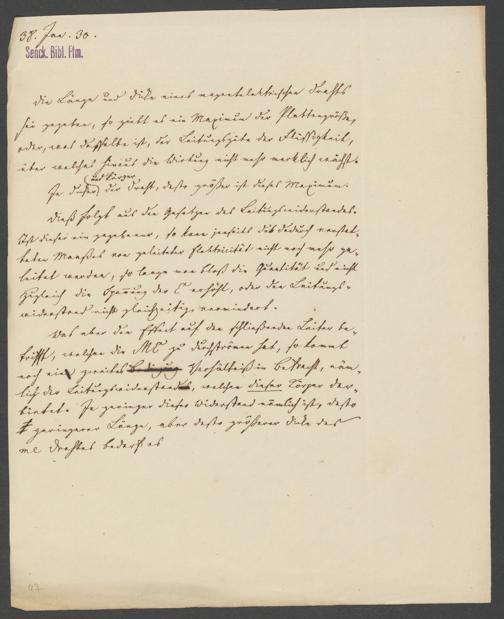 38. Jan. 30.
Senck. Bibl. Ffm.
Die Länge und Dicke eines magnetelektrischen Drahts
sei gegeben, so giebt es ein Maximum der Plattengröße,
oder, was dasselbe ist, der Leitungsgüte der Flüssigkeit,
über welches hinaus die Wirkung nicht mehr merklich wächst.
und kürzer
Je dicker der Draht, desto größer ist dieses Maximum.
Dieß folgt aus den Gesetzen des Leitungswiderstandes.
Ist dieser ein gegebener, so kann jenseits des dadurch
Maaßes von geleiteter Elektricität nicht noch mehr ge-
leitet werden, so lange man bloß die Quantität und nicht
zugleich die Spannung der E erhöht, oder den Leitungs-
widerstand nicht gleichzeitig vermindert.
Was aber den Effect auf den schließenden Leiter be-
trifft, welchen die ME zu durchströmen hat, so kommt
noch ein zweites Verhältniß in Betracht, näm-
lich der Leitungswiderstand, welchen dieser Körper dar-
bietet. Je geringer dieser Widerstand nämlich ist, desto
geringerer Länge, aber desto größerer Dicke des
me Drahtes bedarf es
47